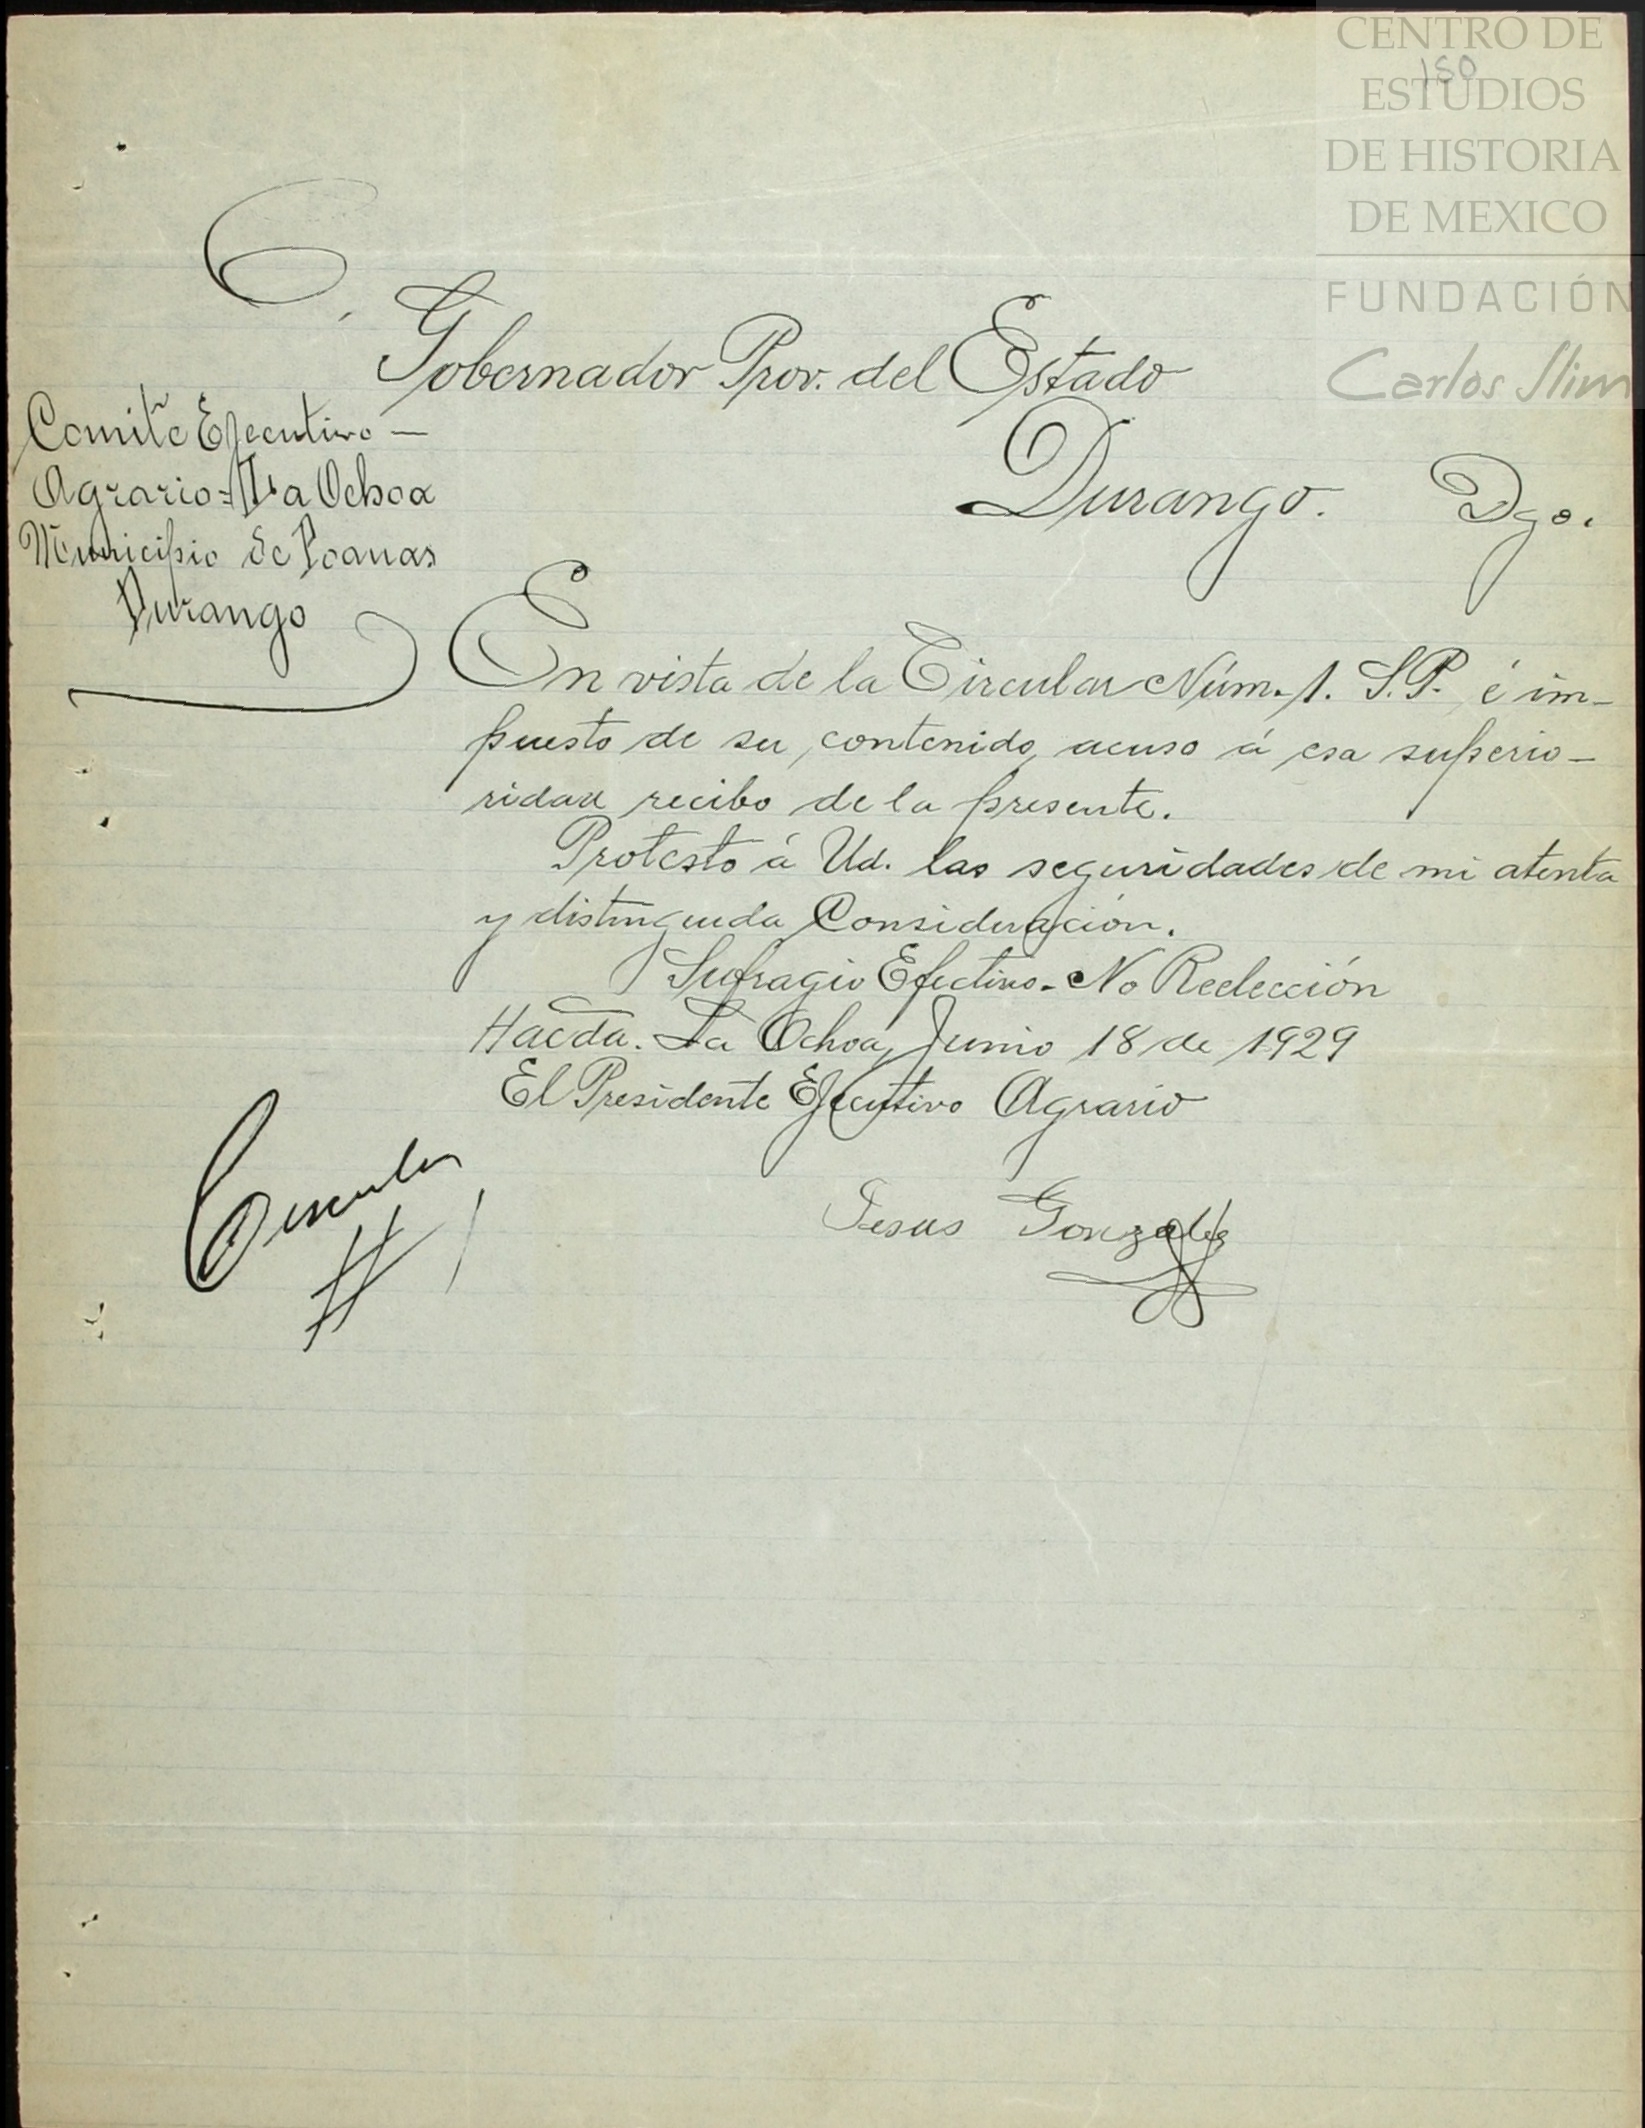 CENTRO DE
ESTUDIOS
DE HISTORIA
DE MEXICO
FUNDACIÓN
Carlos Slim
150
C.
Gobernador Prov. del Estado
Durango. Dgo.
Comite Ejecutivo —
Agrario = La Ochoa
Municipio de Poanas
Durango
En vista de la Circular Núm. 1. S.P. é im-
puesto de su contenido, acuso á esa superio-
ridad recibo de la presente.
Protesto á Ud. las seguridades de mi atenta
y distinguida Consideración.
Sufragio Efectivo. No Reelección
Hacda. La Ochoa, Junio 18 de 1929
El Presidente Ejecutivo Agrario
Jesus Gonzalez
Circular
# 1